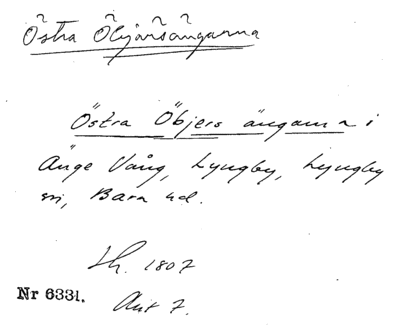 Östra Öbjärsängarna
Östra Öbjers ängarna i
Änge Vång, Lyngby, Lyngby
sn, Bara hd.
Sk. 1807
Nr 6331. Akt 7.